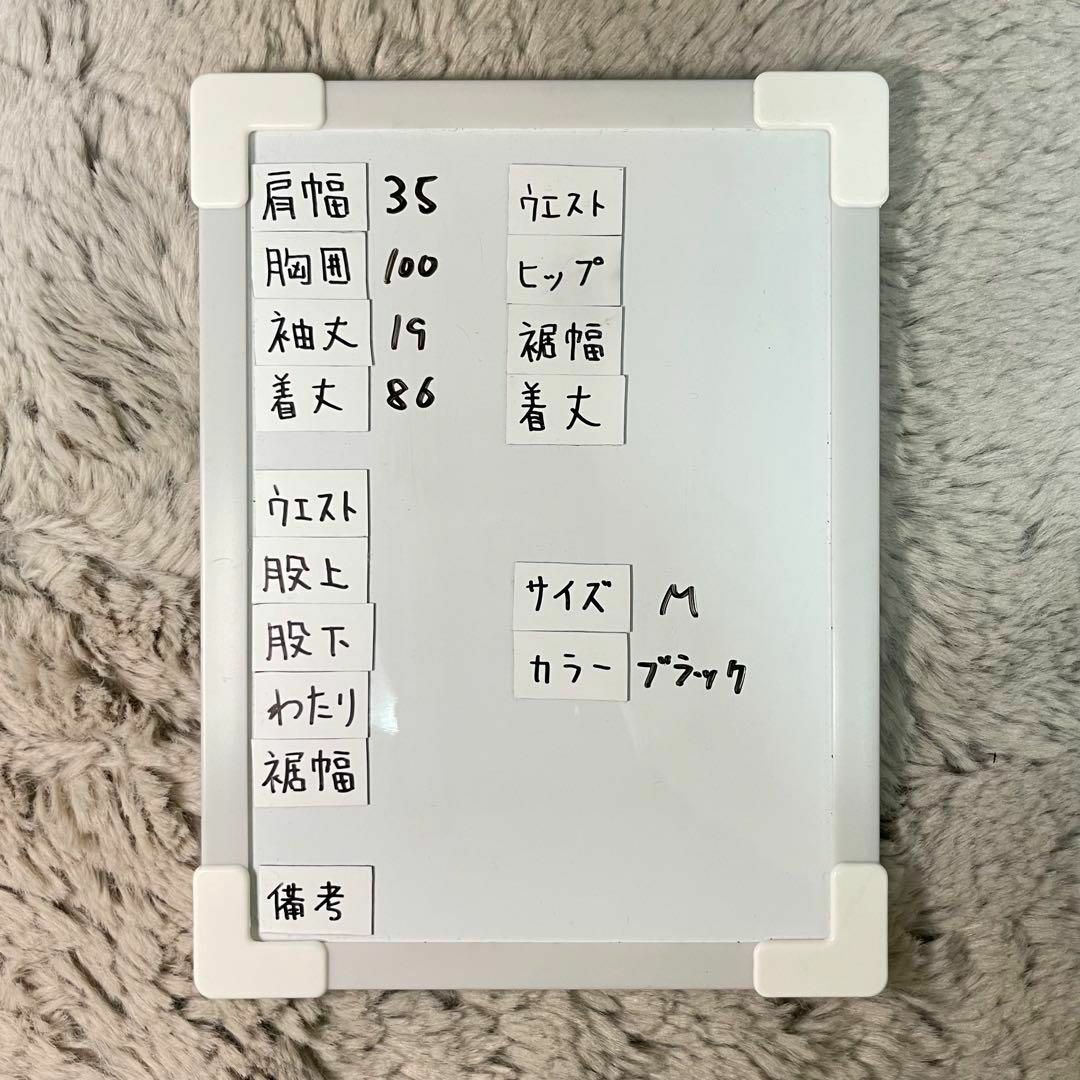 肩幅 35
胸囲 100
袖丈 19
着丈 86
ウエスト
股上
股下
わたり
裾幅
備考
ウエスト
ヒップ
裾幅
着丈
サイズ M
カラー ブラック